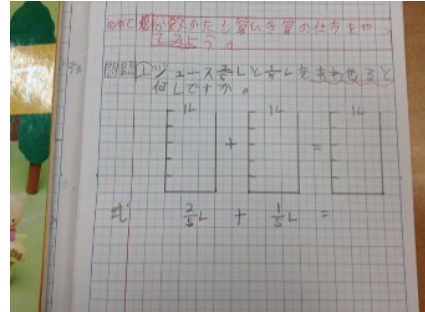 めあて 分数のたし算ひき算の仕方をやってみよう。
問題① ジュース2/5Lと1/5Lをあわせると
何Lですか。
1L 1L 1L
+ =
式 2/5L + 1/5L =